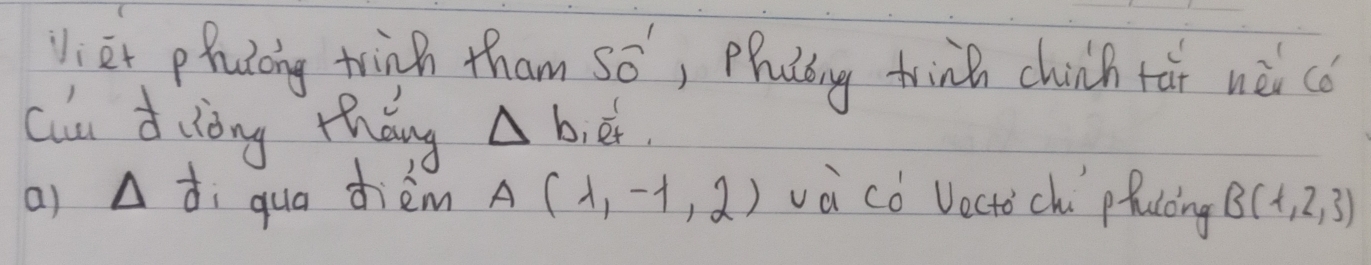 Viết phương trình tham số, phương trình chính tắt nếu có
của đường thẳng Δ biết.
a) Δ đi qua điểm A (1, -1, 2) và có Vectơ chỉ phương B(1,2,3)